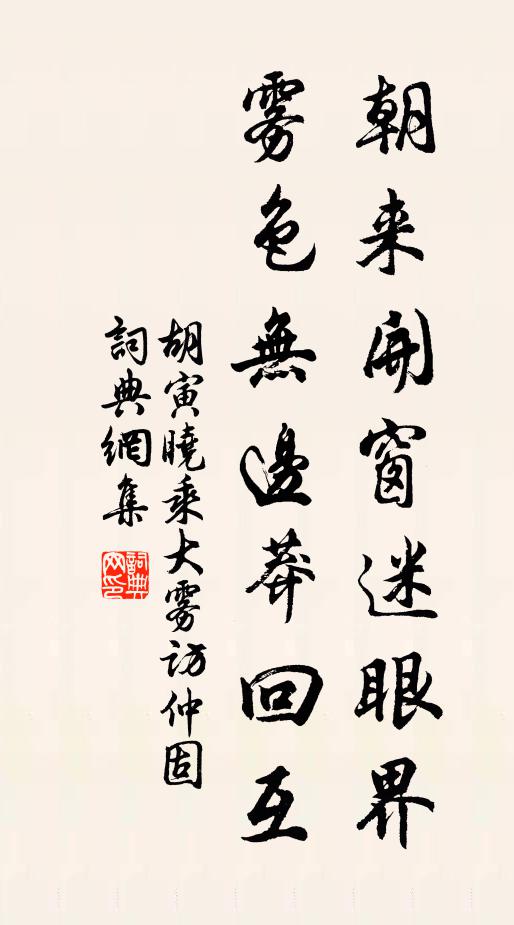 朝来開窗迷眼界
雾色無邊莽回互
胡寅曉乘大雾訪仲固
詞典網集
詞典
网印